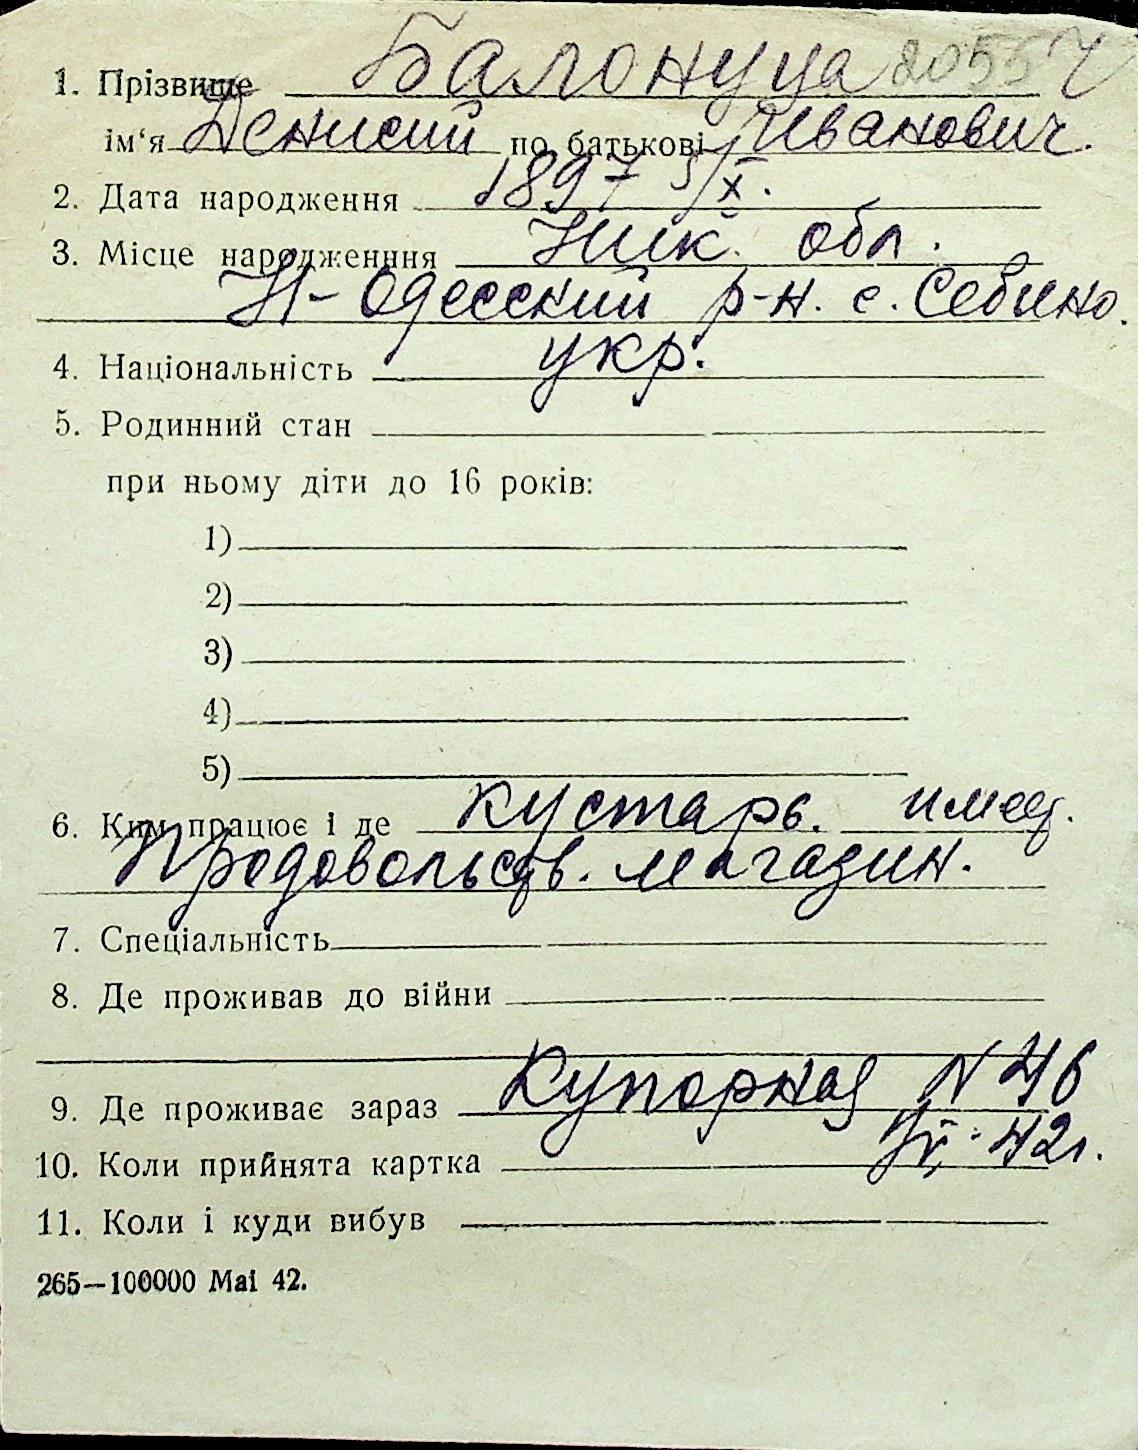 1. Прізвище Балонуца 20557
ім'я Денисий по батькові Иванович.
2. Дата народження 1897 5/X.
3. Місце народженння Ник. обл.
Н-Одесский р-н. с. Себино.
4. Національність укр.
5. Родинний стан
при ньому діти до 16 років:
1)
2)
3)
4)
5)
6. Ким працює і де кустарь. имеет.
Продовольств. магазин.
7. Спеціальність
8. Де проживав до війни
9. Де проживає зараз Купорная N 46
10. Коли прийнята картка 42г.
11. Коли і куди вибув
265—100000 Mai 42.